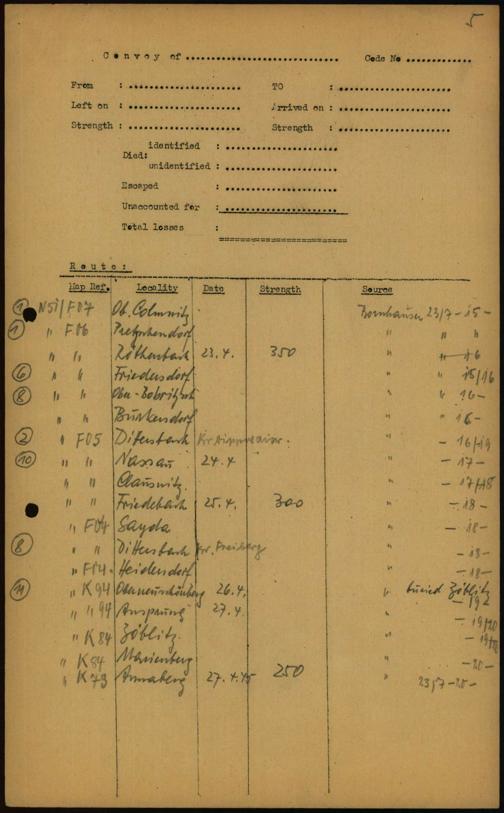 5
Convoy of .................... Code No ..........
From : .................... TO : ....................
Left on : .................... Arrived on : ....................
Strength : .................... Strength : ....................
identified : ....................
Died:
unidentified : ....................
Escaped : ....................
Unaccounted for : ....................
Total losses :
Route:
Map Ref. Locality Date Strength Source
N51/F07 Ob. Colmnitz Bornhauser 23/7 - 15 -
1 " F06 Pretzschendorf " "
" " Röthenbach 23.4. 350 " - 16
6 " " Friedersdorf " 15/16
8 " " Ober-Bobritzsch " 16 -
" " Burkersdorf " 16 -
2 " F05 Dittersbach " - 16/19
10 " " Nassau 24.4 " - 17 -
" " Clausnitz. " - 17/18
" " Friedebach 25.4. 300 " - 18 -
" F04 Sayda " - 18 -
8 " " Dittersbach Kr. Freiberg " - 18 -
" F14. Heidersdorf " - 18 -
11 " K94 Oberneuschönberg 26.4. " buried Zöblitz
" " 94 Ansprung 27.4. " - 19/20
" K84 Zöblitz. "
" K84 Marienberg " - 20 -
" K73 Annaberg 27.4.45 250 " 23/7 - 20 -